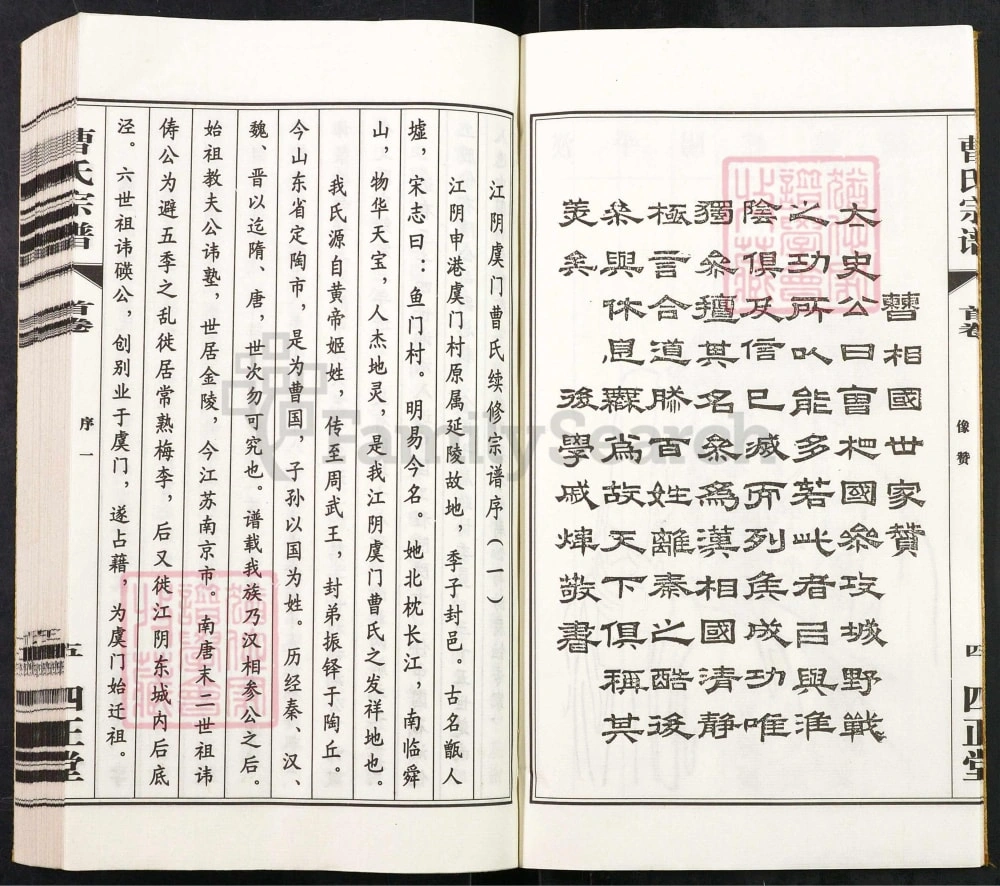 曹氏宗谱
首卷
像赞
四
四正堂
曹相國世家贊
太史公曰曹相國參攻城野戰
之功所以能多若此者㠯與淮
陰俱及信已滅而列矦成功唯
獨參擅其名參為漢相國清静
極言合道然百姓離秦之酷後
參與休息無為故天下俱稱其
美矣 後學戚煒敬書
江阴虞门曹氏续修宗谱序(一)
江阴申港虞门村原属延陵故地，季子封邑。古名甑人
墟，宋志曰：鱼门村。明易今名。她北枕长江，南临舜
山，物华天宝，人杰地灵，是我江阴虞门曹氏之发祥地也。
我氏源自黄帝姬姓，传至周武王，封弟振铎于陶丘。
今山东省定陶市，是为曹国，子孙以国为姓。历经秦、汉、
魏、晋以迄隋、唐，世次勿可究也。谱载我族乃汉相参公之后。
始祖教夫公讳塾，世居金陵，今江苏南京市。南唐末二世祖讳
俦公为避五季之乱徙居常熟梅李，后又徙江阴东城内后底
泾。六世祖讳碤公，创别业于虞门，遂占藉，为虞门始迁祖。
曹氏宗谱
首卷
序一
五
四正堂
猶他家譜學會收藏
猶他家譜學會收藏
FamilySearch